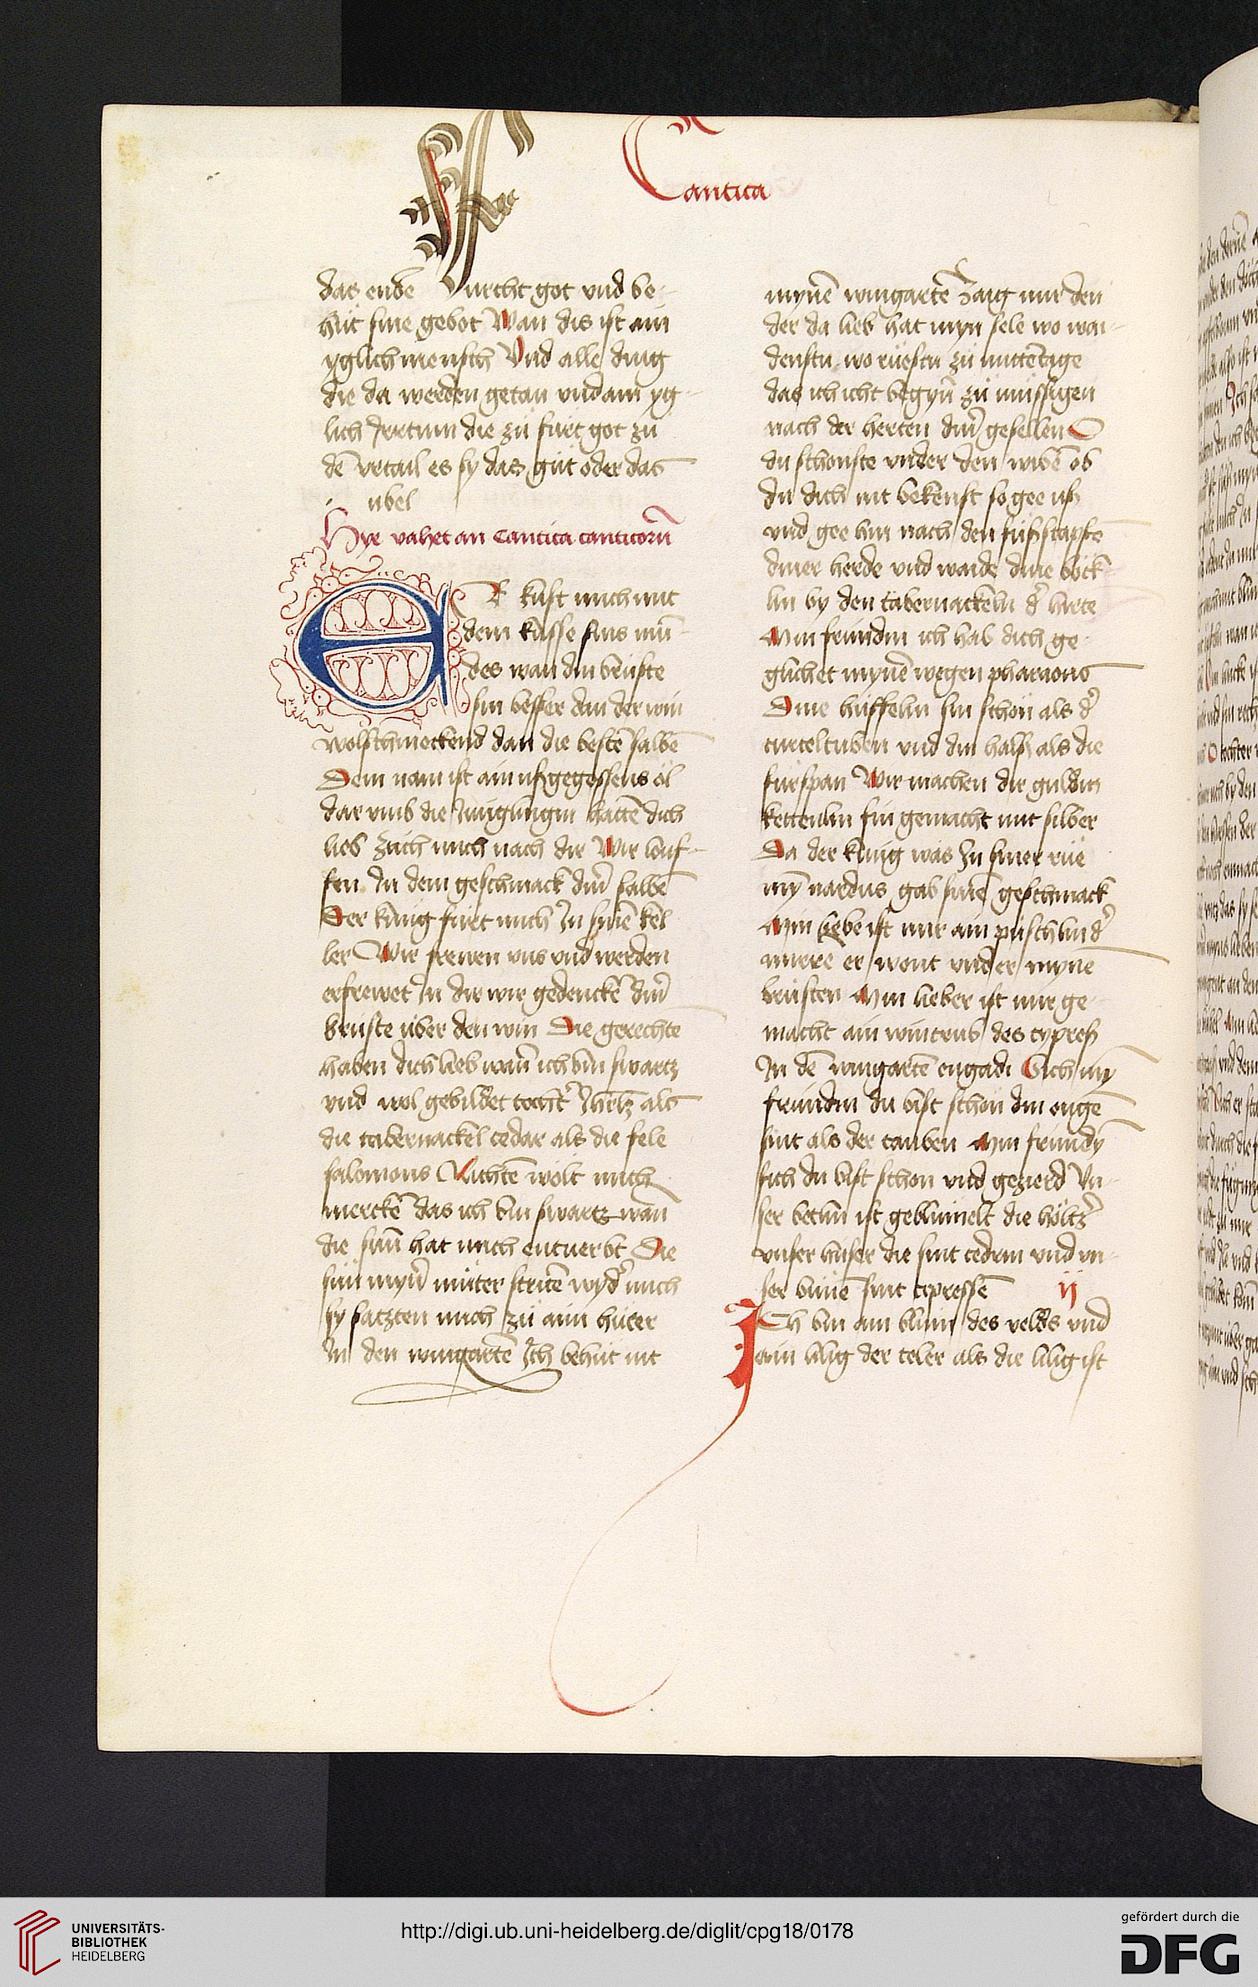 Cantica
das ende Vurcht got vnd be-
hüt sine gebot Wan dis ist ain
yglich mensch Vnd alle ding
die da werden getan vnd ain yg-
lich Irrtum die zü fürt got zü
dē vrtail es sy das güt oder das
übel
Hye vahet an Cantica canticorū
ER küst mich mit
dem kusse sins mū-
des wan din brüste
sin besser dan der win
wolschmeckend dan die bestē salbē
Dein nam ist ain ussgegossens öl
dar vmb die Jungligin hattē dich
lieb züch mich nach dir Wir louf-
fen In dem geschmack dinr̄ salbē
Der künig fürt mich In sinē kel
ler Wir frewen vns vnd werden
erfrewet In dir wir gedenckē dinr̄
brüste über den win Die gerechtē
haben dich lieb wan̄ ich bin swartz
vnd wol gebildet tocht' Ihrlm als
die tabernackel cedar als die fele
salomons Nichtē wölt mich
merckē das ich bin swartz wan̄
die sun̄ hat mich entuerbt Die
sün mynr̄ müter stritē wyd' mich
sy satzten mich zü aim hüter
In den wingartē Ich behüt nit
mynē wingartē Zaig mir den
der da lieb hat myn sele wo wai-
denstu wo rüestu zü mittētage
das ich icht begyn̄ zü müssigen
nach der herten dinr̄ gesellen O
du schonste vnder den wibē ob
du dich nit bekenst so gee uss
vnd gee hin nach den füssstapfē
diner herde vnd waide dine böck-
lin by den tabernackeln d' hirtē
Min fründin ich hab dich ge-
glichet mynē wegen pharaons
Dine hüffelin sin schön als d'
turteltuben vnd din halss als die
fürspan Wir machen dir guldin
kettenlin fin gemacht mit silber
Da der künig was In siner rüe
my nardus gab sinē geschmack
Min liebe ist mir ain püschlin d'
mirre er wont vnder mynē
brüsten Min lieber ist mir ge-
macht ain wintrub des cypress
In dē wingartē engadi Sich my
fründin du bist schön din ougē
sint als der tauben Min fründy
sich du bist schon vnd gezierd Vn-
ser bettin ist geblümelt die höltz'
vnser hüser die sint cedrin vnd vn-
ser bünē sint cipressē ij
ICh bin ain blüm des velds vnd
ain lilig der teler als die lilig ist
UNIVERSITÄTS-
BIBLIOTHEK
HEIDELBERG
http://digi.ub.uni-heidelberg.de/diglit/cpg18/0178
gefördert durch die
DFG